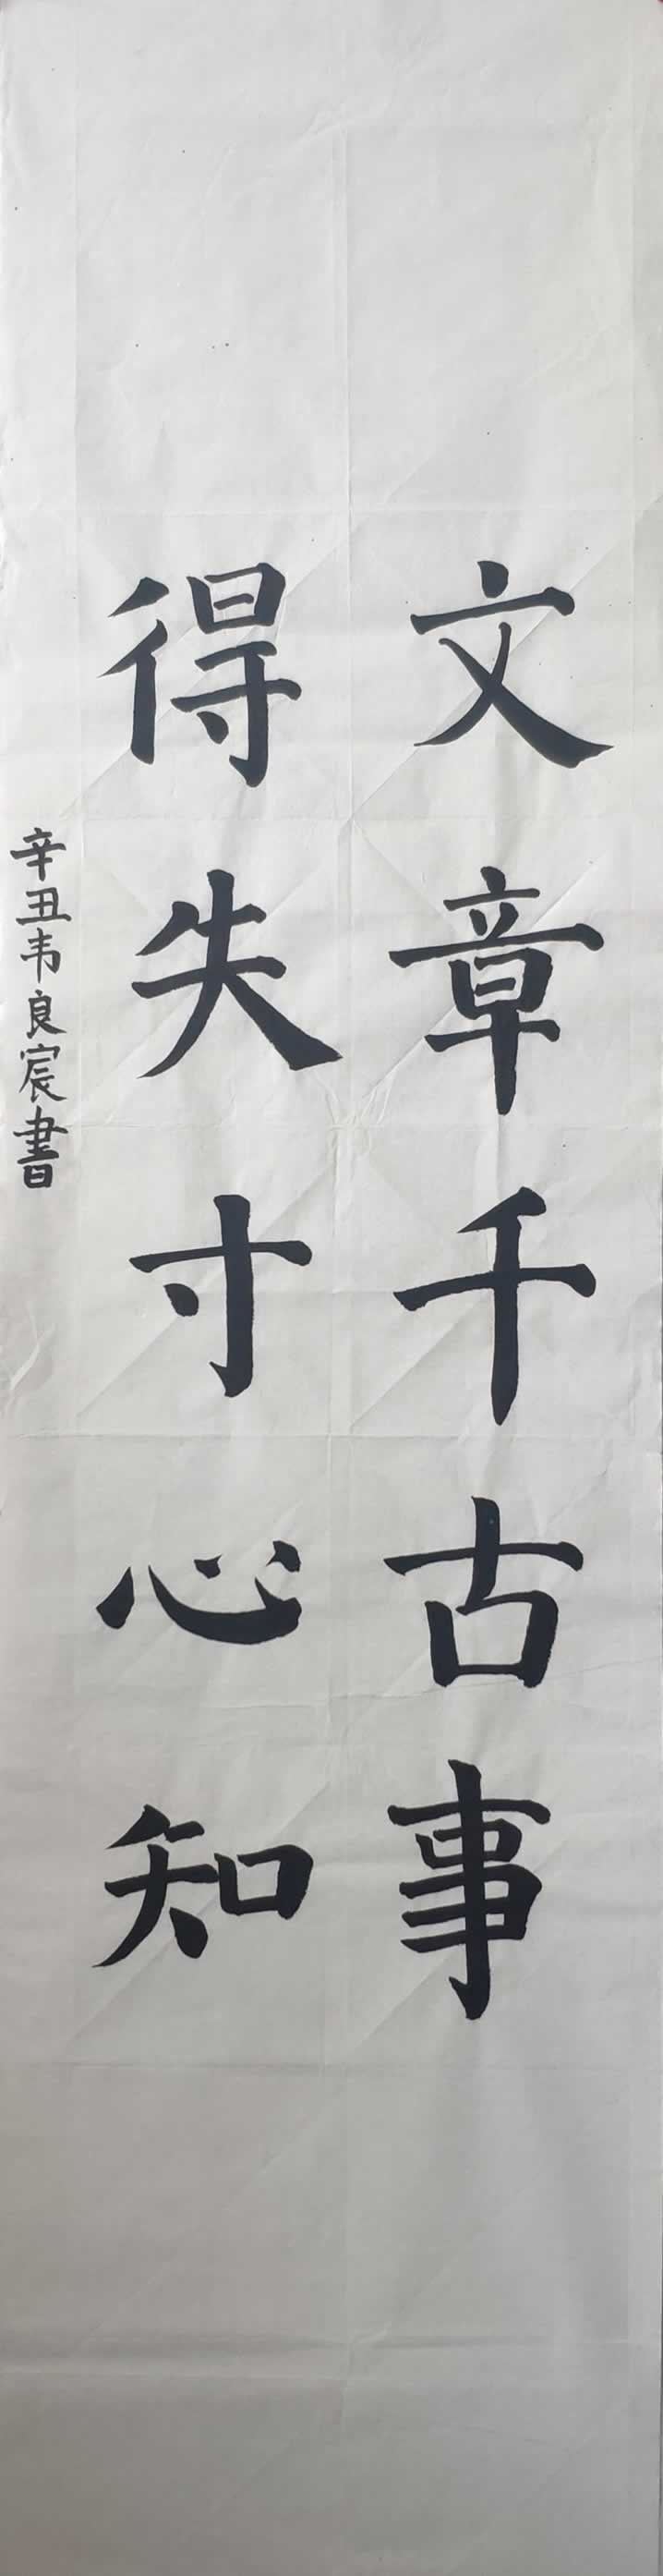 文章千古事
得失寸心知
辛丑韦良宸書